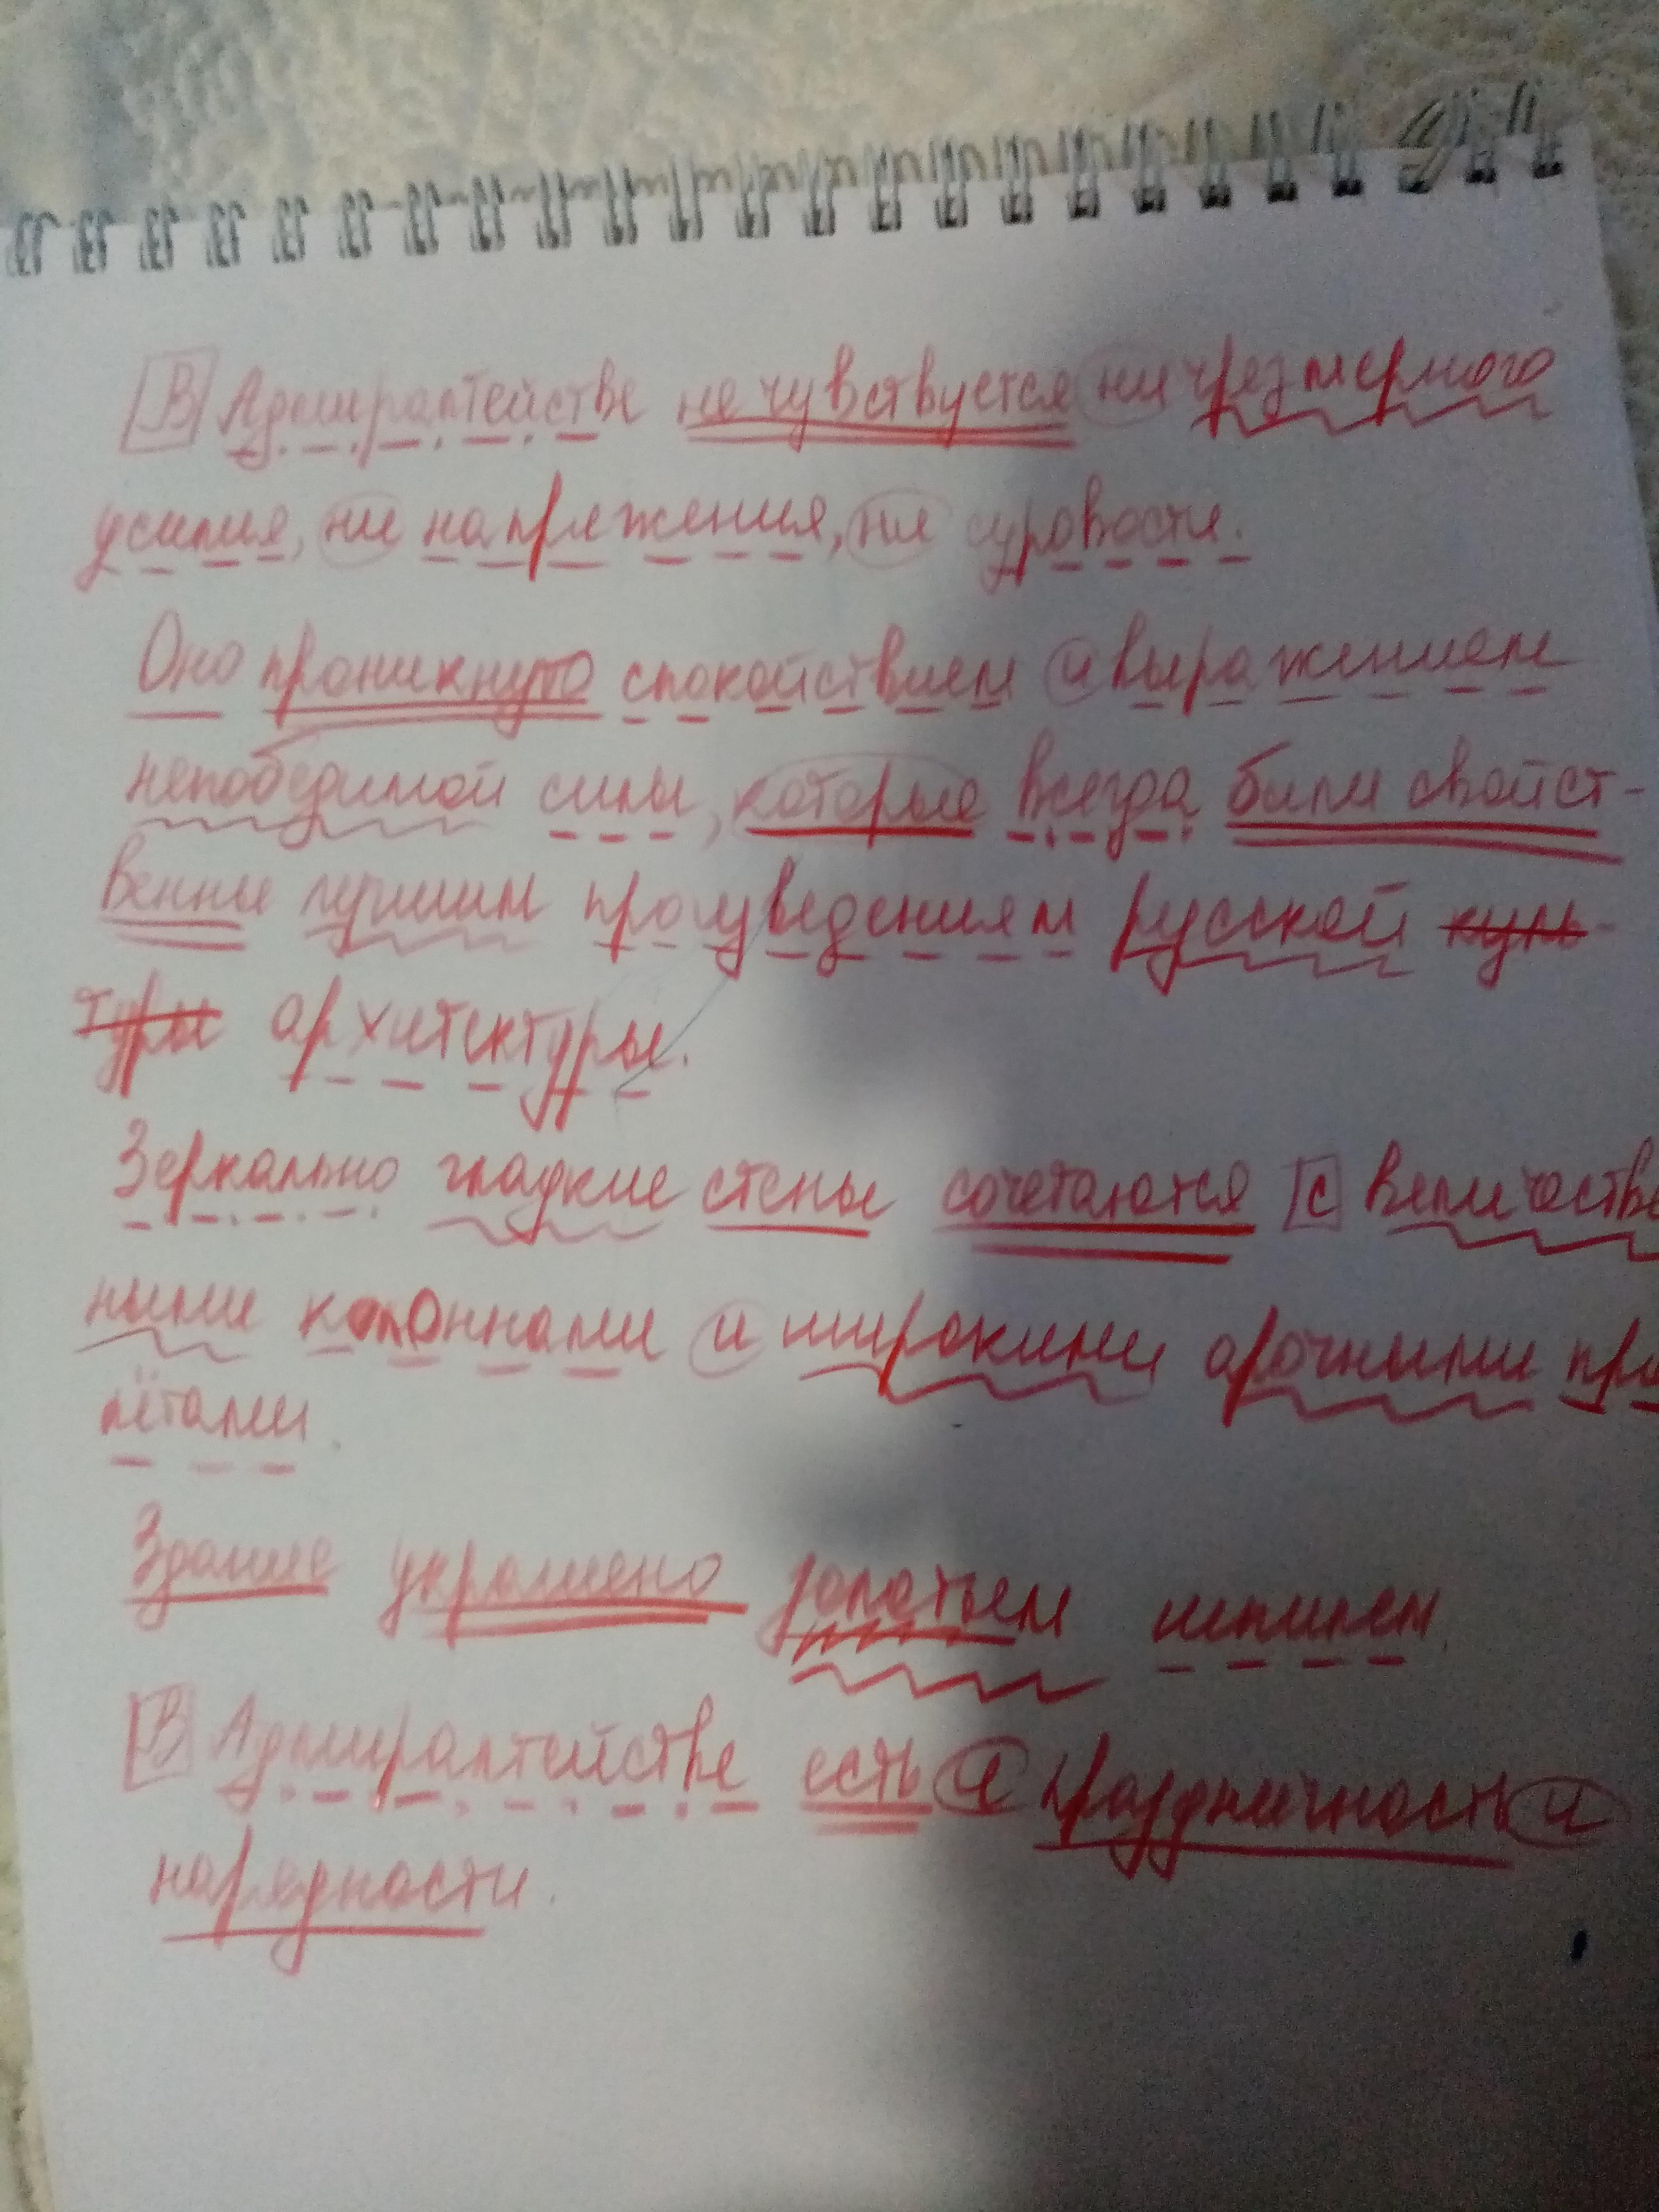 В Адмиралтействе не чувствуется ни чрезмерного
усилия, ни напряжения, ни суровости.
Оно проникнуто спокойствием и выражением
непобедимой силы, которые всегда были свойст-
венны лучшим произведениям русской куль-
туры архитектуры.
Зеркально гладкие стены сочетаются с величестве
ными колоннами и широкими арочными про
лётами.
Здание украшено золотым шпилем.
В Адмиралтействе есть и праздничность и
нарядности.